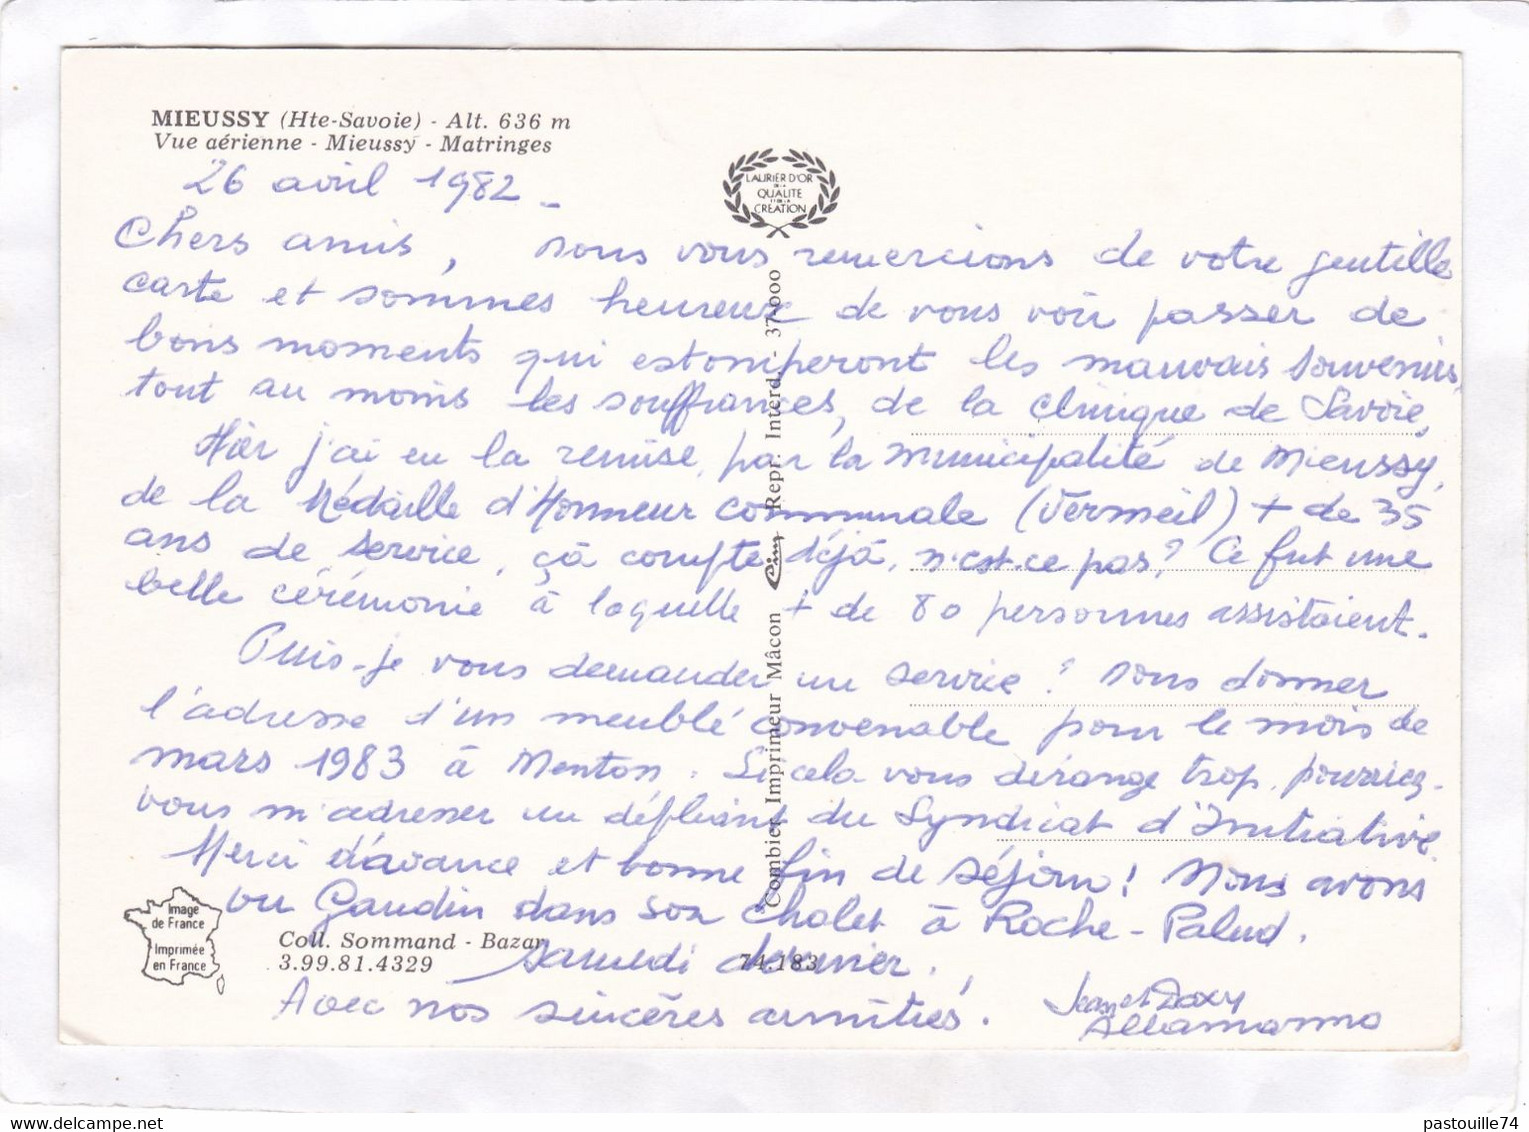 MIEUSSY (Hte-Savoie) - Alt. 636 m
Vue aérienne - Mieussy - Matringes
LAURIER D'OR
DE LA
QUALITE
ET DE LA
CREATION
26 avril 1982 -
Chers amis, nous vous remercions de votre gentille
carte et sommes heureux de vous voir passer de
bons moments qui estomperont les mauvais souvenirs,
tout au moins les souffrances, de la clinique de Savoie,
Hier j'ai eu la remise, par la municipalité de Mieussy,
de la Médaille d'Honneur communale (Vermeil) + de 35
ans de service, çà compte déjà, n'est-ce pas? Ce fut une
belle cérémonie à laquelle + de 80 personnes assistaient.
Puis-je vous demander un service? nous donner
l'adresse d'un meublé convenable pour le mois de
mars 1983 à Menton. Si cela vous dérange trop, pourriez-
vous m'adresser un dépliant du Syndicat d'Initiative.
Merci d'avance et bonne fin de séjour! Nous avons
vu Gaudin dans son chalet à Roche-Palud.
samedi dernier.
Avec nos sincères amitiés.
Jean et Daxy
Allamanno
Combier Imprimeur Mâcon Cim Repr. Interd. - 37-000
Image
de France
Imprimée
en France
Coll. Sommand - Bazar
3.99.81.4329
74.183
pastouille74